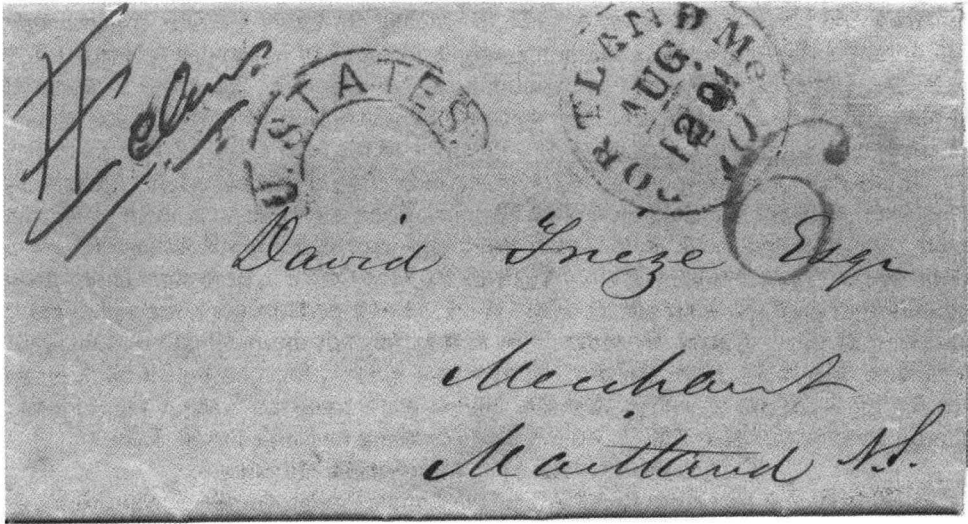 U. STATES
PORTLAND Me
AUG.
6
David Frieze Esqr
Merchant
Maitland N.S.